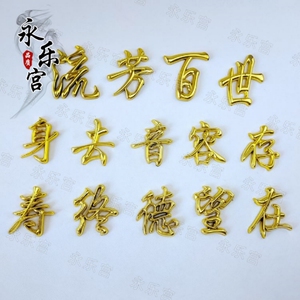 永乐宫
流芳百世
身去音容存
寿终德望在